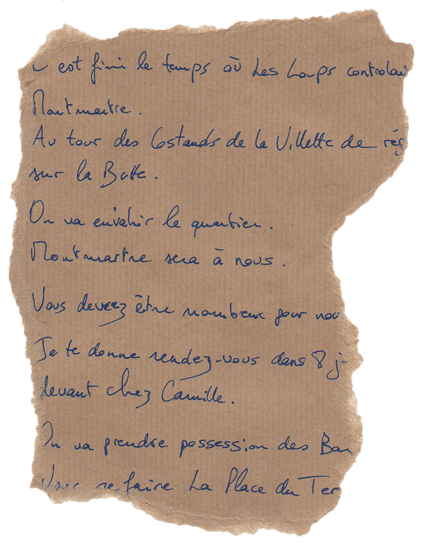 C'est fini le temps où Les Loups controlai
Montmartre.
Au tour des Costands de la Villette de rég
sur la Butte.
On va envahir le quartier.
Montmartre sera à nous.
Vous devrez être nombreux pour nou
Je te donne rendez-vous dans 8 j
devant chez Camille.
On va prendre possession des Bar
Vous refaire La Place du Ter